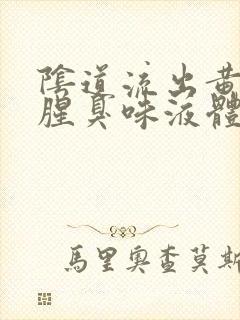 陰道流出黃
腥臭味液體
馬里奧查莫斯